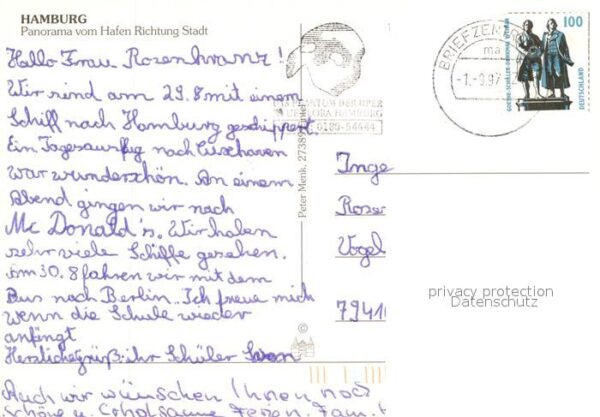 HAMBURG
Panorama vom Hafen Richtung Stadt
Hallo Frau Rosenkranz!
Wir sind am 29.8 mit einem
Schiff nach Hamburg geschippert.
Ein Tagesausflug nach Cuxhaven
war wunderschön. An einem
Abend gingen wir nach
Mc Donald's. Wir haben
sehr viele Schiffe gesehen.
Am 30.8 fahren wir mit dem
Bus nach Berlin. Ich freue mich
wenn die Schule wieder
anfängt
Herzliche Grüß. ihr Schüler Sven
Auch wir wünschen Ihnen noch
schöne u. erholsame Ferien. Fam.
Peter Menk, 27389
DAS PHANTOM DER OPER
NEUE FLORA HAMBURG
0180-54444
BRIEFZEN
ma
-1.-9.97
100
DEUTSCHLAND
GOETHE-SCHILLER-DENKMAL WEIMAR
Inge
Rosen
Vogel
79410
privacy protection
Datenschutz
©